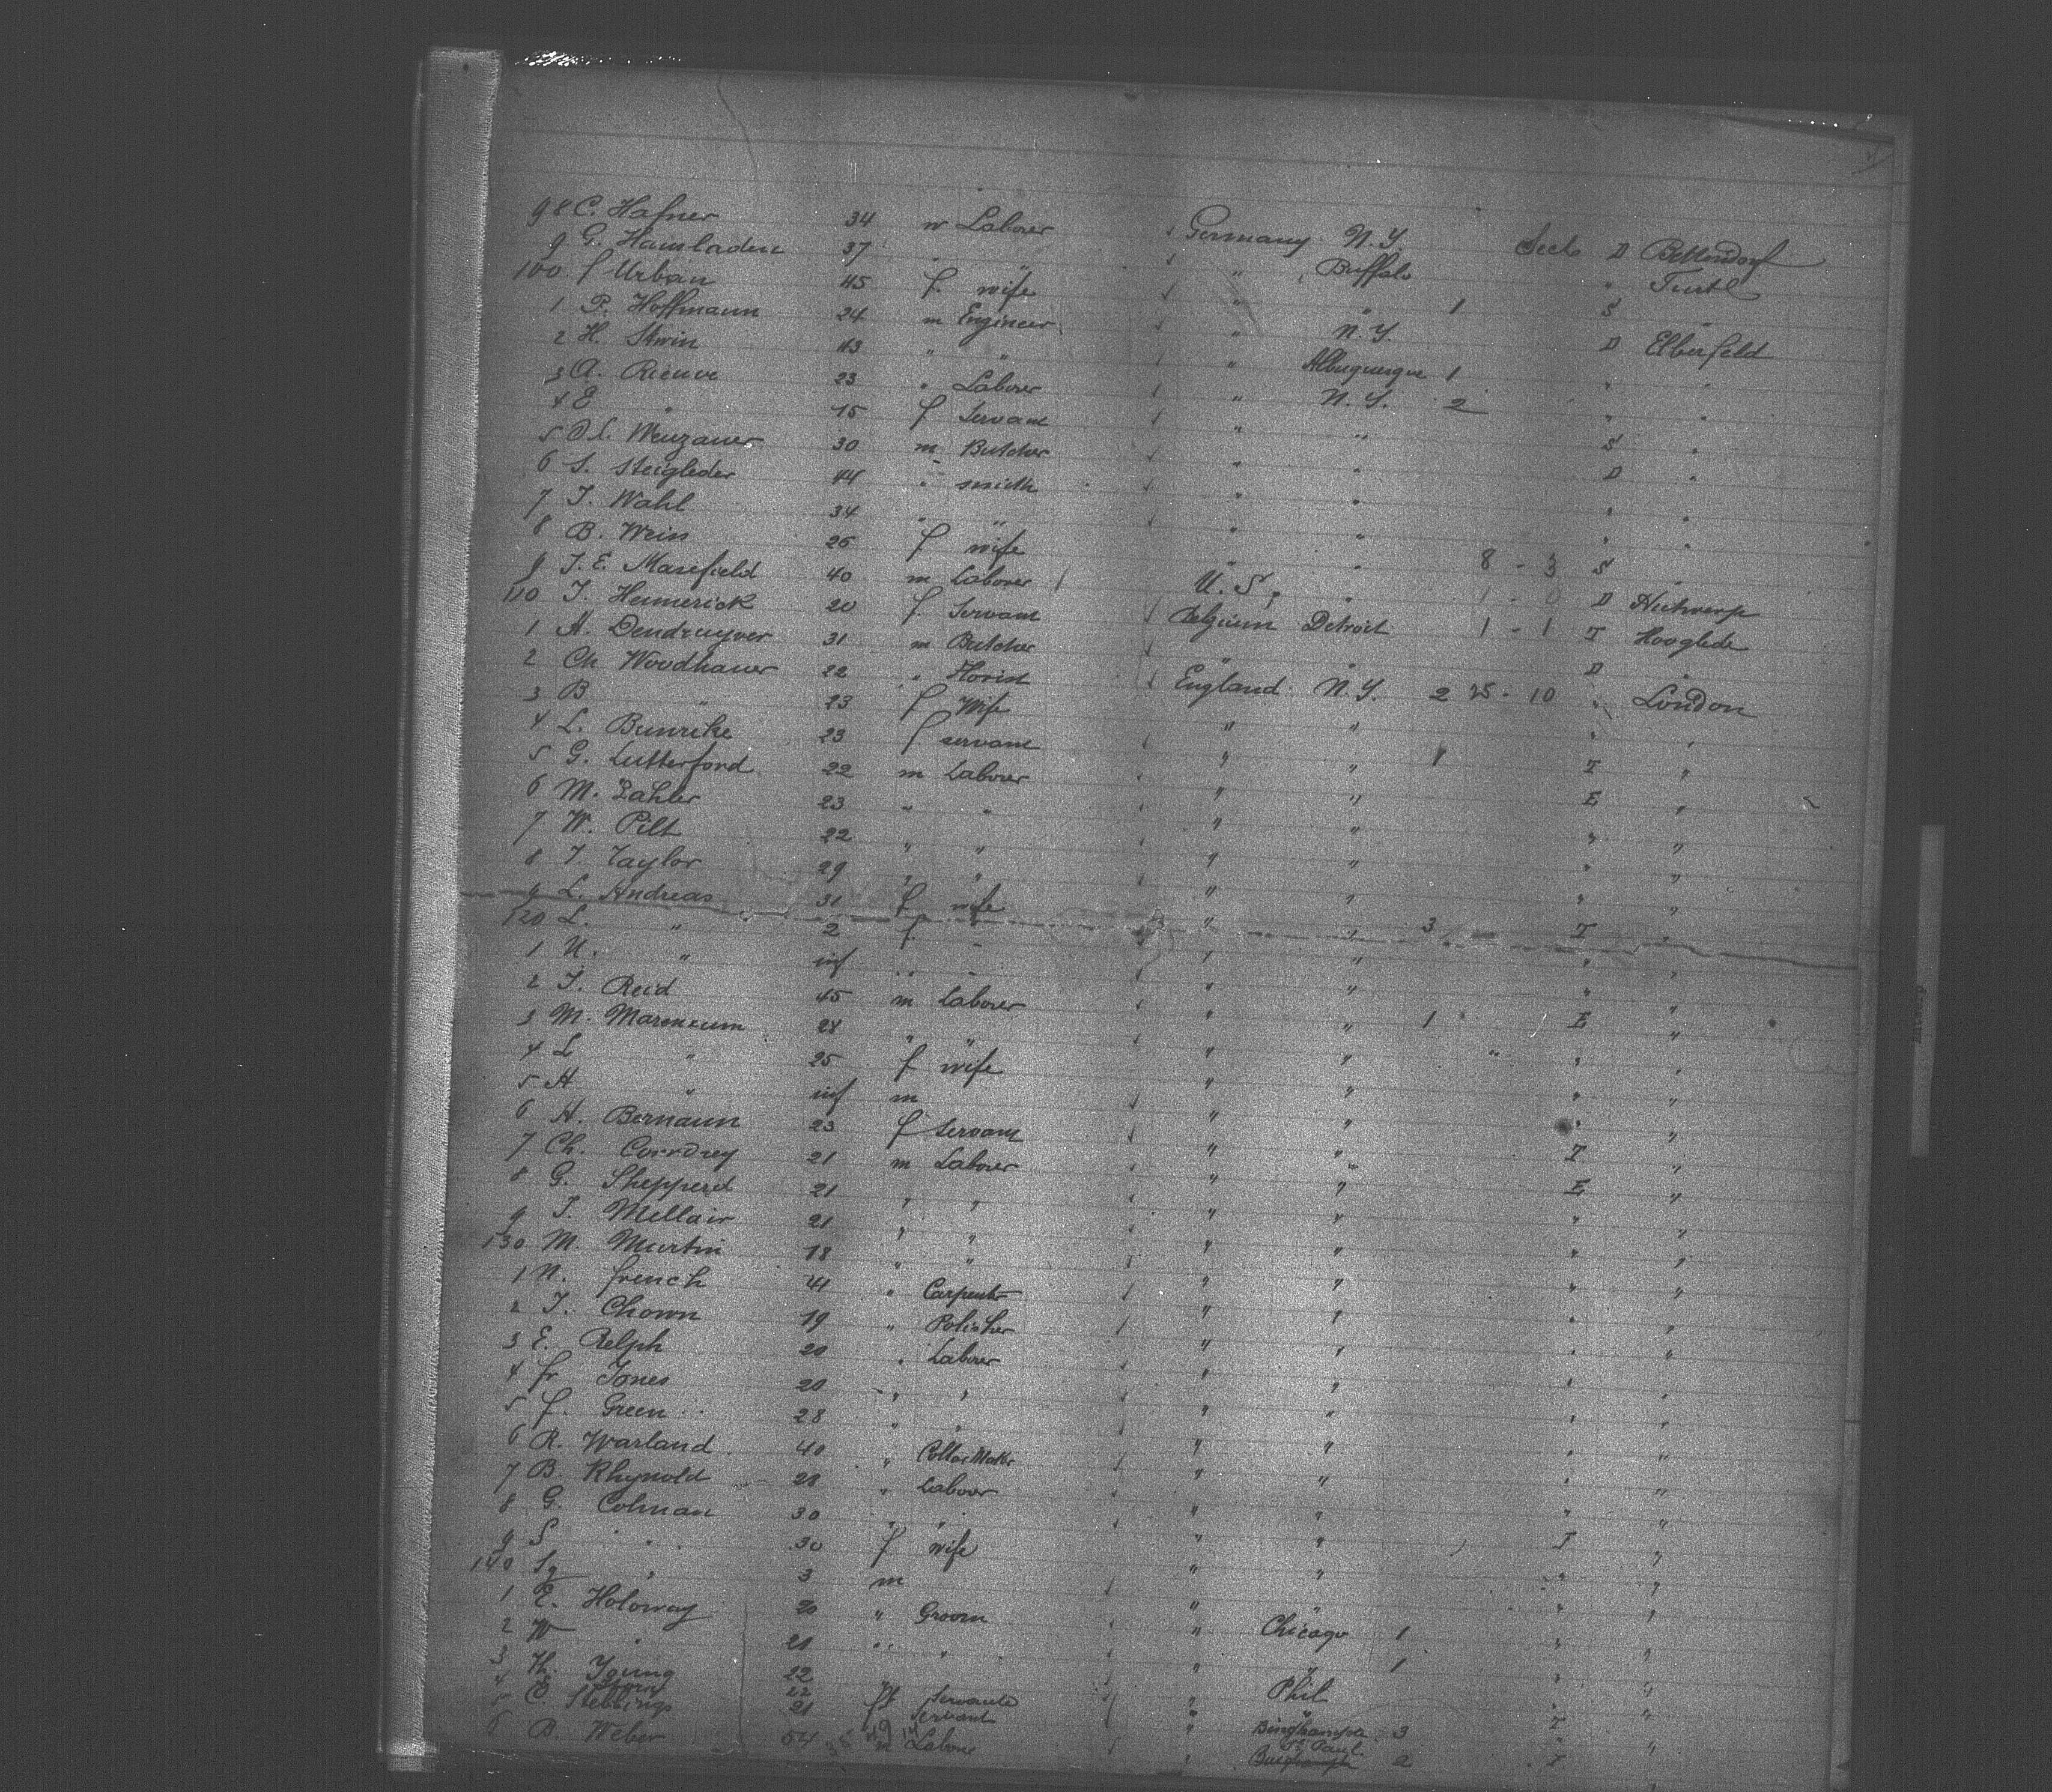 98 C. Hafner 34 m Laborer Germany N.Y. D Bettendorf
9 G. Hainladen 37 " " " Buffalo "
100 f Urban 45 f. wife " " 1 S "
1 P. Hoffmann 24 m Engineer " N.Y. D Elberfeld
2 H. Stwin 43 " " " Albuquerque 1 " "
3 A. Rieuve 23 " Laborer " N.Y. 2 " "
4 E " 15 f Servant " " S "
5 Wenzauer 30 m Butcher " " D "
6 S. Steigleder 44 " smith " " " "
7 J. Wahl 34 " " " " " "
8 B. Wein 26 f wife " " 8 - 3 S "
9 J. E. Masefield 40 m Laborer U.S. " 1 - 0 D Antwerp
110 J. Hemerick 20 f Servant Belgium Detroit 1 - 1 T Hooglede
1 A. Dendruyver 31 m Butcher " " D "
2 Ch Woodhauer 22 " Florist England N.Y. 2 25 - 10 " London
3 B " 23 f Wife " " " "
4 L. Bunrike 23 f servant " " 1 T "
5 G. Lutterford 22 m Laborer " " E "
6 M. Zahler 23 " " " " " "
7 W. Pilt 22 " " " " " "
8 T. Taylor 29 " " " " " "
9 L. Andreas 31 f wife " " 3 T "
120 L. " 2 f. " " " "
1 N. " inf " " " " "
2 J. Reid 45 m Laborer " " 1 E "
3 M. 28 " " " " " "
4 L " 25 f wife " " " "
5 H " inf m " " " "
6 H. Bernaun 23 f Servant " " T "
7 Ch. Corrdrey 21 m Laborer " " E "
8 G. Shepperd 21 " " " " " "
9 J. Mellair 21 " " " " " "
130 M. Martin 18 " " " " " "
1 N. french 41 " Carpenter " " " "
2 J. Chown 19 " Polisher " " " "
3 E. Relph 20 " Laborer " " " "
4 fr Jones 20 " " " " " "
5 f. Green 28 " " " " " "
6 R. Warland 40 " Collar Maker " " " "
7 B. Rhynold 21 " Laborer " " " "
8 G. Colman 30 " " " " T "
9 S " 30 f wife " " " "
140 " 3 m " " " "
1 E. Holoway 20 " Groom " Chicago 1 " "
2 W " 21 " " " " 1 " "
3 Th. Young 22 " " " Phil " "
4 22 f Servants " " "
5 C. Stebbings 21 f Servant " Binghampton 3 T "
6 B. Weber 54 m Laborer " St. Paul 2 T "